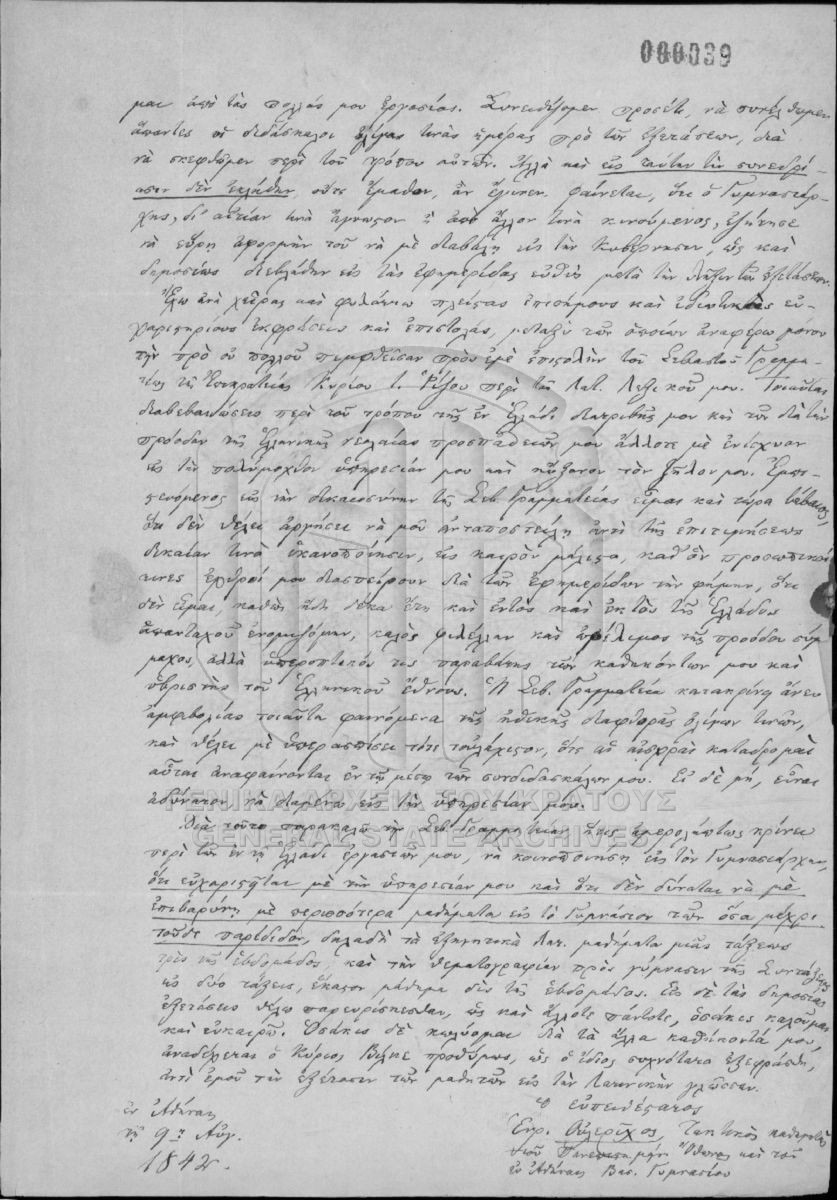 000039
μαι ἀπὸ τὰς πολλάς μου ἐργασίας. Συνειθίζομεν προσέτι, νὰ συνέλθωμεν
ἅπαντες οἱ διδάσκαλοι ὀλίγας τινὰς ἡμέρας πρὸ τῶν ἐξετάσεων, διὰ
νὰ σκεφθῶμεν περὶ τοῦ τρόπου αὐτῶν. Ἀλλὰ καὶ εἰς ταύτην τὴν συνεδρί-
ασιν δὲν ἐκλήθην, οὔτε ἔμαθον, ἂν ἔγεινεν. φαίνεται, ὅτι ὁ Γυμνασιάρ-
χης, δι' αἰτίαν τινὰ ἄγνωστον ἢ ἀπὸ ἄλλον τινὰ κινούμενος, ἐζήτησε
νὰ εὕρῃ ἀφορμὴν τοῦ νὰ μὲ διαβάλῃ εἰς τὴν Κυβέρνησιν, ὡς καὶ
δημοσίως διεβλήθην εἰς τὰς ἐφημερίδας εὐθὺς μετὰ τὴν λῆξιν τῶν ἐξετάσεων.
Ἔχω ἀνὰ χεῖρας καὶ φυλάττω πλείστας ἐπισήμους καὶ ἰδιωτικὰς εὐ-
χαριστηρίους ἐκφράσεις καὶ ἐπιστολάς, μεταξὺ τῶν ὁποίων ἀναφέρω μόνον
τὴν πρὸ οὐ πολλοῦ πεμφθεῖσαν πρὸς ἐμὲ ἐπιστολὴν τοῦ Σεβαστοῦ Γραμμα-
τέως τῆς Ἐπικρατείας Κυρίου Ι. Ῥίζου περὶ τοῦ Λατ. Λεξικοῦ μου. Τοιαῦται
διαβεβαιώσεις περὶ τοῦ τρόπου τῆς ἐν Ἑλλάδι διατριβῆς μου καὶ τῶν διὰ τὴν
πρόοδον τῆς Ἑλληνικῆς νεολαίας προσπαθειῶν μου ἄλλοτε μὲ ἐνίσχυον
εἰς τὴν πολύμοχθον ὑπηρεσίαν μου καὶ ηὔξανον τὸν ζῆλον μου. Ἐμπι-
στευόμενος εἰς τὴν δικαιοσύνην τῆς Σεβ. Γραμματείας εἶμαι καὶ τώρα βέβαιος,
ὅτι δὲν θέλει ἀργήσει νὰ μοῦ ἀνταποστείλῃ ἀντὶ τῆς ἐπιτιμήσεως
δικαίαν τινὰ ἱκανοποίησιν, εἰς καιρὸν μάλιστα, καθ' ὃν προσωπικοί
τινες ἐχθροί μου διασπείρουν διὰ τῶν ἐφημερίδων τὴν φήμην, ὅτι
δὲν εἶμαι, καθὼς ἤδη δέκα ἔτη καὶ ἐντὸς καὶ ἐκτὸς τῆς Ἑλλάδος
ἁπανταχοῦ ἐνομιζόμην, καλὸς φιλέλλην καὶ ὠφέλιμος τῆς προόδου σύμ-
μαχος, ἀλλὰ ὑπεροπτικός τις παραβάτης τῶν καθηκόντων μου καὶ
ὑβριστὴς τοῦ Ἑλληνικοῦ ἔθνους. Ἡ Σεβ. Γραμματεία κατακρίνει ἄνευ
ἀμφιβολίας τοιαῦτα φαινόμενα τῆς ἠθικῆς διαφθορᾶς ὀλίγων τινῶν,
καὶ θέλει μὲ ὑπερασπίσει τότε τοὐλάχιστον, ὅτε αἱ αἰσχραὶ καταδρομαὶ
αὗται ἀναφαίνονται ἐν τῷ μέσῳ τῶν συνδιδασκάλων μου. Εἰ δὲ μή, εἶναι
ἀδύνατον νὰ διαμένω εἰς τὴν ὑπηρεσίαν μου.
Διὰ τοῦτο παρακαλῶ τὴν Σεβ. Γραμματείαν, ἥτις ἀμερολήπτως κρίνει
περὶ τῶν ἐν τῇ Ἑλλάδι ἐργασιῶν μου, νὰ κοινοποιήσῃ εἰς τὸν Γυμνασιάρχην,
ὅτι εὐχαριστεῖται μὲ τὴν ὑπηρεσίαν μου καὶ ὅτι δὲν δύναται νὰ μὲ
ἐπιβαρύνῃ μὲ περισσότερα μαθήματα εἰς τὸ Γυμνάσιον τῶν ὅσα μέχρι
τοῦδε παρέδιδον, δηλαδὴ τὰ ἐξηγητικὰ Λατ. μαθήματα μιᾶς τάξεως
τρὶς τῆς ἑβδομάδος, καὶ τὴν θεματογραφίαν πρὸς γύμνασιν τῆς Συντάξεως
εἰς δύο τάξεις, ἕκαστον μάθημα δὶς τῆς ἑβδομάδος. Εἰς δὲ τὰς δημοσίας
ἐξετάσεις θέλω παρευρίσκεσθαι, ὡς καὶ ἄλλοτε πάντοτε, ὁσάκις καλοῦμαι
καὶ εὐκαιρῶ. Ὁσάκις δὲ κωλύομαι διὰ τὰ ἄλλα καθήκοντά μου,
ἀναδέχεται ὁ Κύριος προθύμως, ὡς ὁ ἴδιος συχνότατα ἐξεφράσθη,
ἀντὶ ἐμοῦ τὴν ἐξέτασιν τῶν μαθητῶν εἰς τὴν Λατινικὴν γλῶσσαν.
ἐν Ἀθήναις
τῇ 9ῃ Αὐγ.
1842.
Ὁ εὐπειθέστατος
Ἑρρ. Οὐλερῖχος, Τακτικὸς καθηγητὴς
τοῦ Πανεπιστημ. Ὄθωνος καὶ τοῦ
ἐν Ἀθήναις Βασ. Γυμνασίου
ΓΕΝΙΚΑ ΑΡΧΕΙΑ ΤΟΥ ΚΡΑΤΟΥΣ
GENERAL STATE ARCHIVES